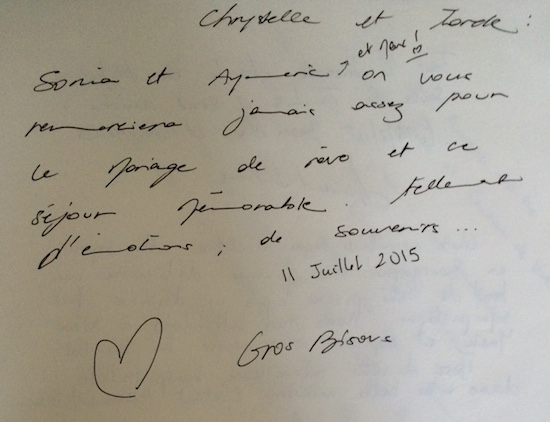 Chrystelle et :
et Mars ! :)
Sonia et Aymeric, on vous
remerciera jamais assez pour
le Mariage de rêve et ce
séjour mémorable. tellement
d'émotions, de souvenirs ...
11 Juillet 2015
Gros Bisous